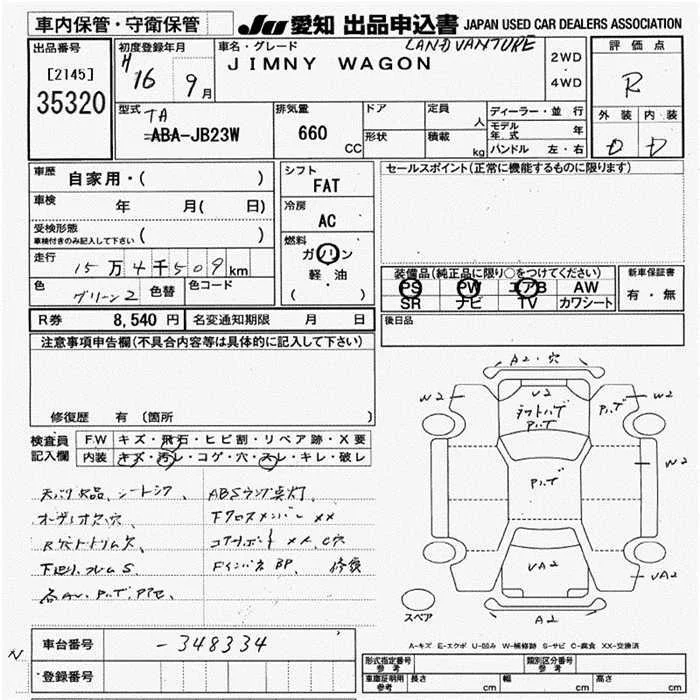 車内保管・守衛保管
JU 愛知 出品申込書 JAPAN USED CAR DEALERS ASSOCIATION
出品番号
[2145]
35320
初度登録年月
H 16 9月
車名・グレード LANDVANTURE
JIMNY WAGON
2WD
・
4WD
評価点
R
型式 TA
ABA-JB23W
排気量
660 CC
ドア
形状
定員 人
積載 kg
ディーラー・並行
モデル年式 年
ハンドル 左・右
外装 内装
D D
車歴 自家用・( )
車検 年 月( 日)
受検形態
車検付きのみ記入して下さい ( )
走行 15万4千509km
色 グリーン2 色替 色コード
シフト
FAT
冷房
AC
燃料
ガソリン
軽・油
( )
セールスポイント(正常に機能するものに限ります)
装備品(純正品に限り○をつけてください)
PS PW エアB AW
SR ナビ TV カワシート
新車保証書
有・無
R券 8,540 円 名変通知期限 月 日
後日品
注意事項申告欄(不具合内容等は具体的に記入して下さい)
修復歴 有 (箇所 )
検査員
記入欄
F.W キズ・飛石・ヒビ割・リペア跡・X要
内装 キズ・汚レ・コゲ・穴・スレ・キレ・破レ
ABSランプ点灯、
オーディオ欠、穴
下クロスメンバー XX
コアサポート XX、C穴
下廻り、フレームS
Fインパネ BP、 修復
A2・穴
W2 V2 W2
W2
VA2 VA2
スペア A2
A-キズ E-エクボ U-凹み W-補修跡 S-サビ C-腐食 XX-交換済
N 車台番号 -348334
登録番号
形式指定番号
参考
類別区分番号
参考
車庫証明用
参考
長さ cm 幅 cm 高さ cm